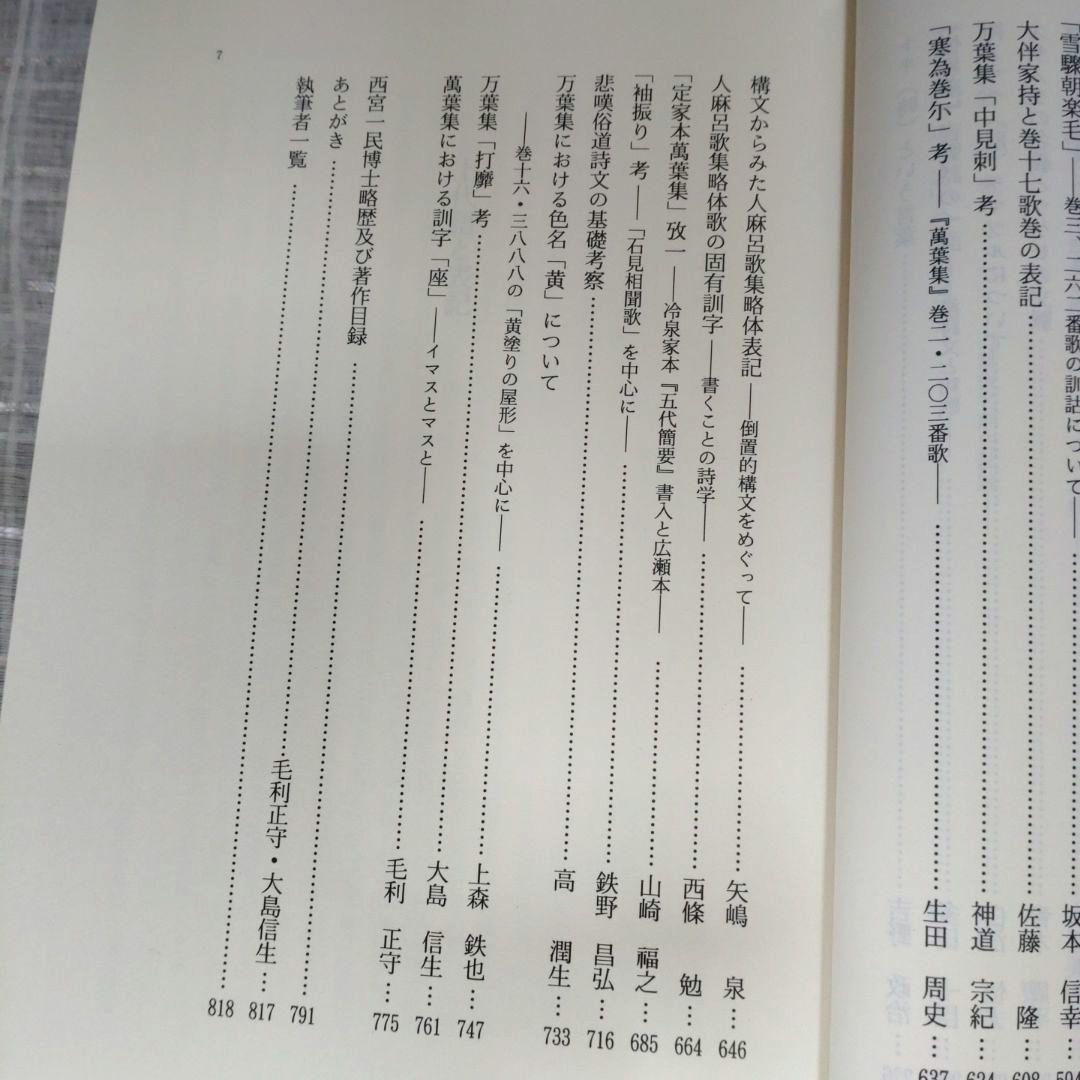 「雪驟朝楽毛」――巻三、二六二番歌の訓詁について――……坂本 信幸…594
大伴家持と巻十七歌巻の表記……佐藤 隆…608
万葉集「中見刺」考……神道 宗紀…624
「寒為巻尓」考――『萬葉集』巻二・二〇三番歌――……生田 周史…637
構文からみた人麻呂歌集略体表記――倒置的構文をめぐって――……矢嶋 泉…646
人麻呂歌集略体歌の固有訓字――書くことの詩学――……西條 勉…664
「定家本萬葉集」攷一――冷泉家本『五代簡要』書入と広瀬本――……山崎 福之…685
「袖振り」考――「石見相聞歌」を中心に――……鉄野 昌弘…716
悲嘆俗道詩文の基礎考察……高 潤生…733
万葉集における色名「黄」について
――巻十六・三八八八の「黄塗りの屋形」を中心に――……上森 鉄也…747
万葉集「打靡」考……大島 信生…761
萬葉集における訓字「座」――イマスとマスと――……毛利 正守…775
西宮一民博士略歴及び著作目録……791
あとがき……毛利正守・大島信生…817
執筆者一覧……818
7